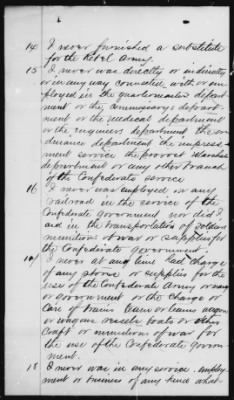 14 I never furnished a substitute
for the Rebel Army.
15 I never was directly or indirectly
or in any way connected with or em
ployed in the quartermaster depart
ment or the commissary depart
ment or the medical department
or the engineers department the or
dinance department the impress
ment service the provost marshals
department or any other branch
of the Confederate service
16 I never was employed on any
railroad in the service of the
Confederate Government nor did I
aid in the transportation of soldiers
munitions of war or supplies for
the Confederate Government
17 I never at any time had charge
of any stores or supplies for the
use of the Confederate Army or navy
or Government or the charge or
care of trains teams wagons
or wagons vessels boats or other
craft or munitions of war for
the use of the Confederate govern
ment.
18 I never was in any service employ
ment or business of any kind what